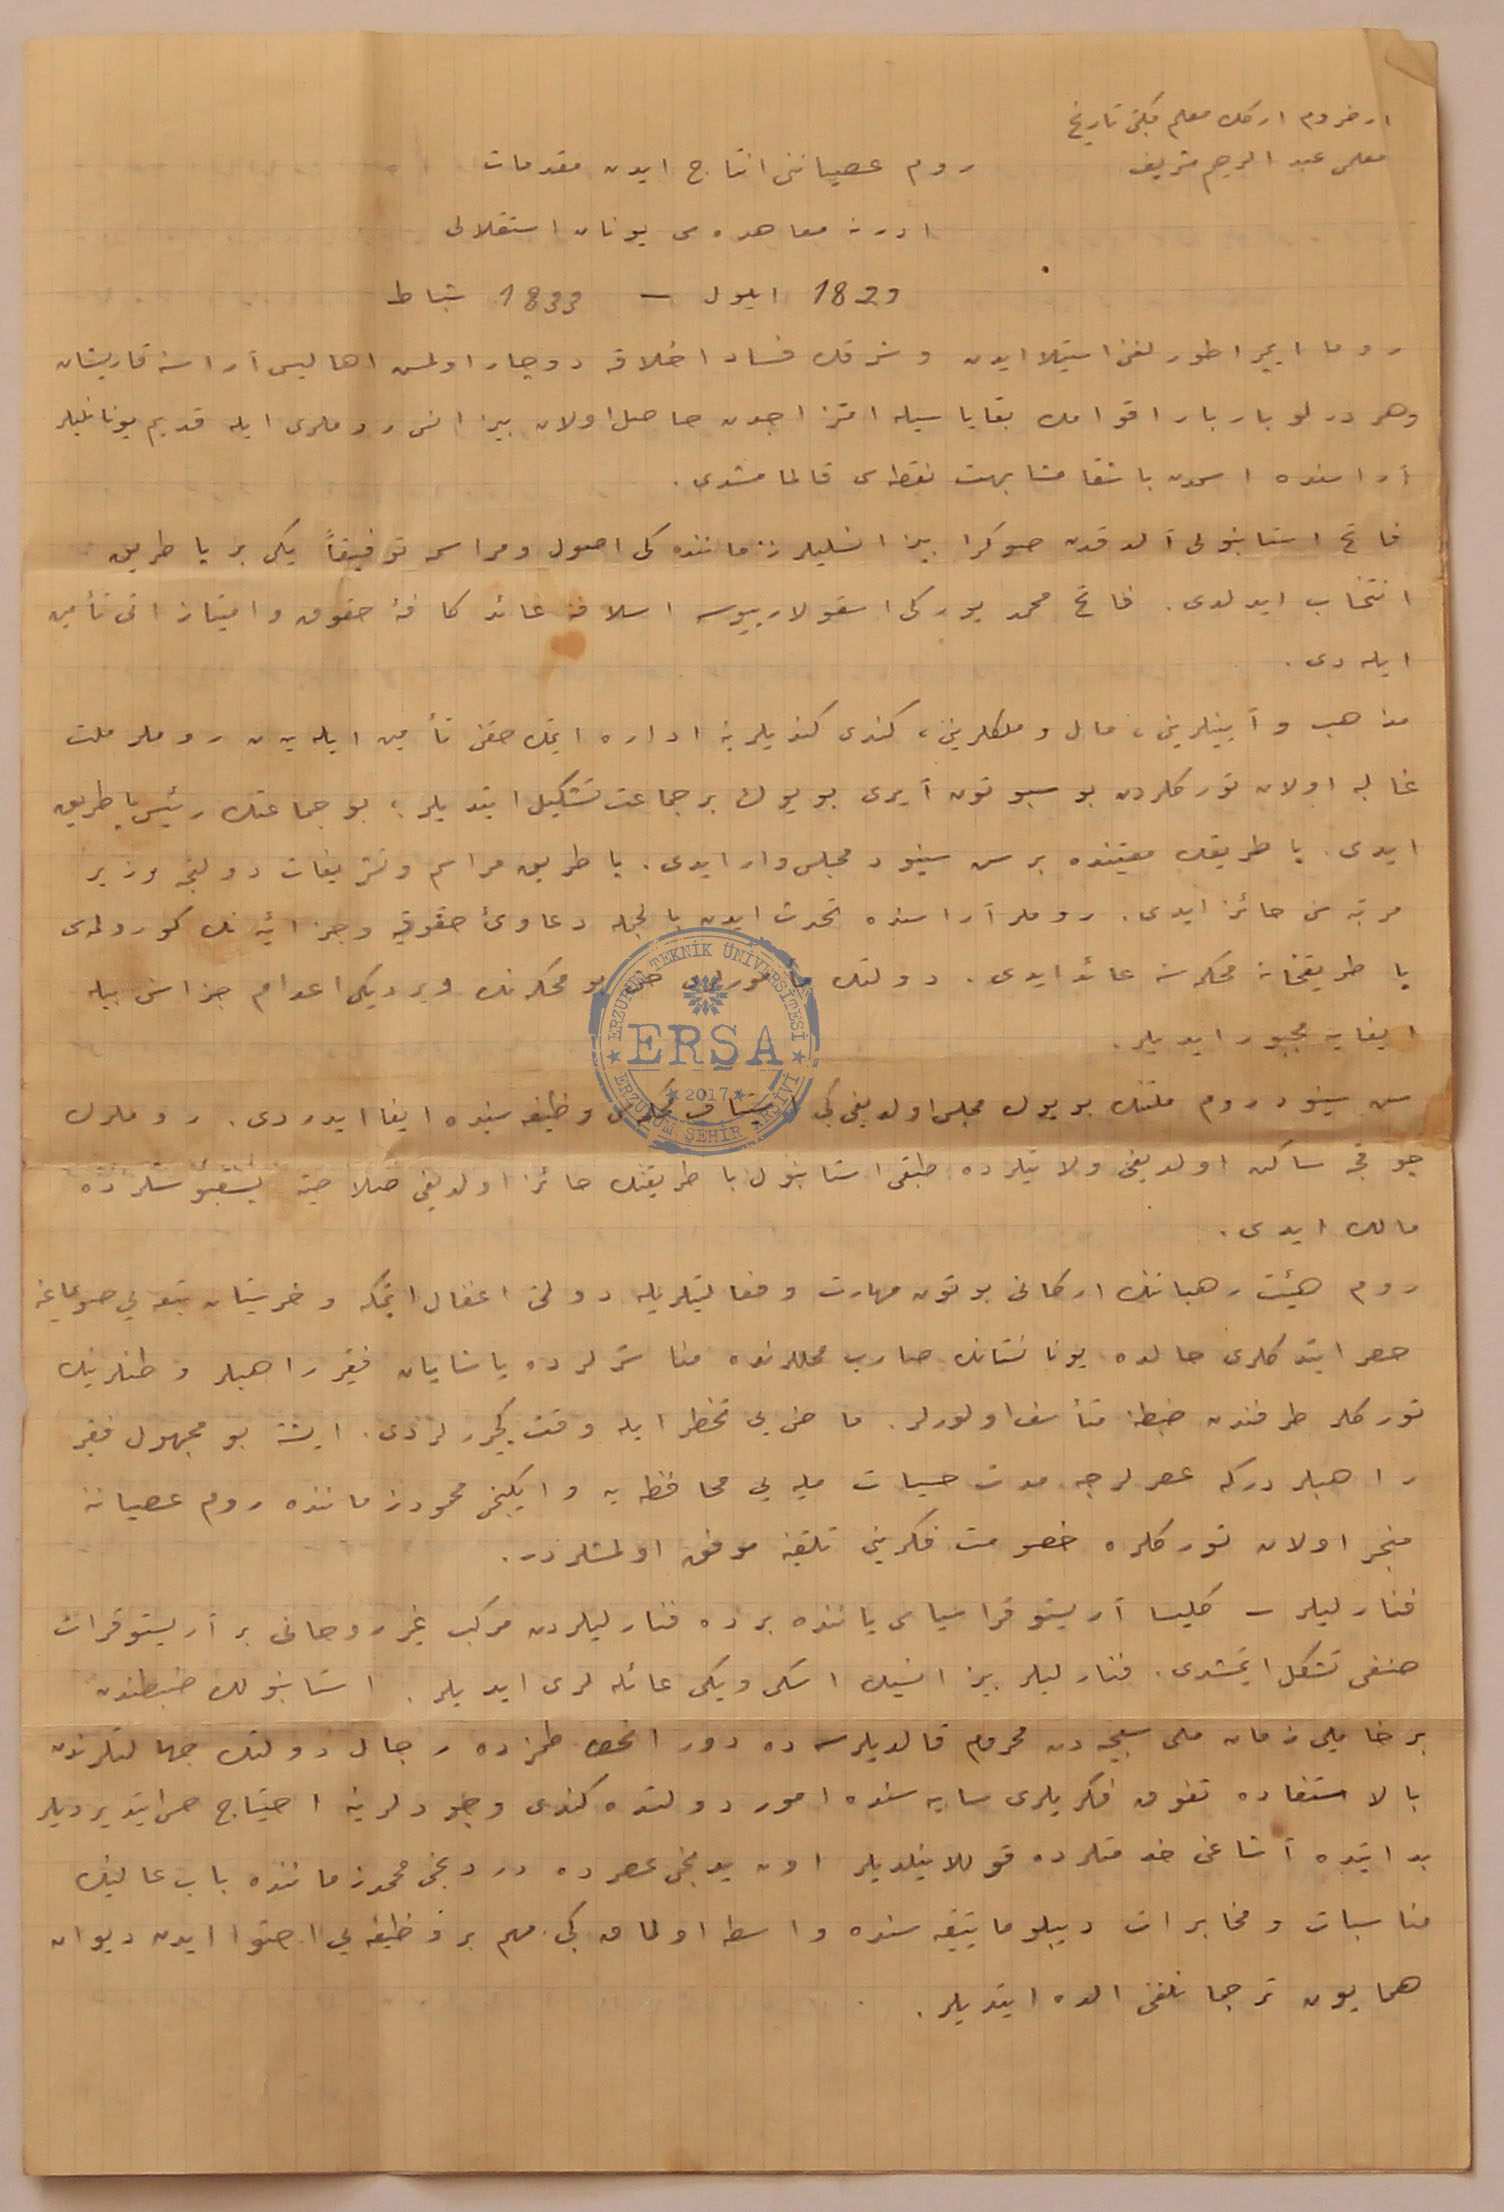 ارضروم ارکک معلم مکتبی تاریخ
معلمی عبد الرحیم شریف
روم عصیاننی انتاج ایدن مقدمات
ادرنه معاهده سی یونان استقلالی
1829 ایلول — 1833 شباط
روما ایمپراطورلغنی استیلا ایدن و شرقک فساد اخلاقه دوچار اولمش اهالیسی آراسنه قاریشان
وهر درلو باربار اقوامک بقایاسیله امتزاجدن حاصل اولان بیزانس روملری ایله قدیم یونانلیلر
آراسنده اسمدن باشقا مشابهت نقطه سی قالمامشدی .
فاتح استانبولی آلدقدن صوکرا بیزانسلیلر زماننده کی اصول ومراسمه توفیقاً یکی بر پاطریق
انتخاب ایدلدی . فاتح محمد یورکی اسقولارییوسه اسلافنه عائد کافهٔ حقوق وامتیازاتی تأمین
ایله دی .
مذهب و آیینلرینی ، مال و ملکلرینی ، کندی کندیلرینه اداره ایتمک حقنی تأمین ایله ین روملر ملت
غالبه اولان تورکلردن بوسبوتون آیری بویوک بر جماعت تشکیل ایتدیلر ؛ بو جماعتک رئیسی پاطریق
ایدی . پاطریقک معیتنده بر سن سینود مجلسی وار ایدی . پاطریق مراسم وتشریفات دولتجه وزیر
مرتبه سنی حائز ایدی . روملر آراسنده تحدث ایدن بالجمله دعاوئ حقوقیه وجزائیه نک کورولمه سی
پاطریقخانه محکمه سنه عائد ایدی . دولتک مأمورلری حتی بو محکمه نک ویردیکی اعدام جزاسنی بیله
ایفایه مجبور ایدیلر .
سن سینود روم ملتنک بویوک مجلسی اولدیغی کبی استیناف محکمه سی وظیفه سینده ایفا ایدردی . روملرک
چوقجه ساکن اولدیغی ولایتلرده طبقی استانبول پاطریقنک حائز اولدیغی صلاحیته پیسقپوسلرده
مالک ایدی .
روم هیئت رهبانینک ارکانی بوتون مهارت وفعالیتلریله دولتی اغفال ایتمکه و خرستیان تبعه یی صویمایه
حصر ایتدکلری حالده یونانستانک صارپ محللرنده مناسترلرده یاشایان فقیر راهبلر وطنلرینک
تورکلر طرفندن ضبطنه متأسف اولورلر . ماضی یی تخطر ایله وقت کچیررلردی . ایشته بو مجهول فقیر
راهبلردرکه عصرلرجه مدت حسیات ملیه یی محافظه یه و ایکنجی محمود زماننده روم عصیاننه
منجر اولان تورکلره خصومت فکرینی تلقینه موفق اولمشلردر .
فنارلیلر — کلیسا آریستوقراسیاسی یاننده برده فنارلیلردن مرکب غیر روحانی بر آریستوقرات
صنفی تشکل ایتمشدی . فنارلیلر بیزانسک اسکی ویکی عائله لری ایدیلر . استانبولک ضبطندن
بر خایلی زمان ملی سجیه دن محروم قالدیلرسه ده دور انحطاطمزده رجال دولتک جهالتلرندن
بالاستفاده تفوق فکریلری سایه سنده امور دولتده کندی وجودلرینه احتیاج حس ایتدیردیلر
بدایتده آشاغی خدمتلرده قوللانیلدیلر اون یدنجی عصرده دردنجی محمد زماننده باب عالینک
مناسبات ومخابرات دیپلوماتیقه سنده واسطه اولمق کبی مهم بر وظیفه یی احتوا ایدن دیوان
همایون ترجمانلغنی الده ایتدیلر .
ERZURUM TEKNİK ÜNİVERSİTESİ
ERŞA
2017
ERZURUM ŞEHİR ARŞİVİ